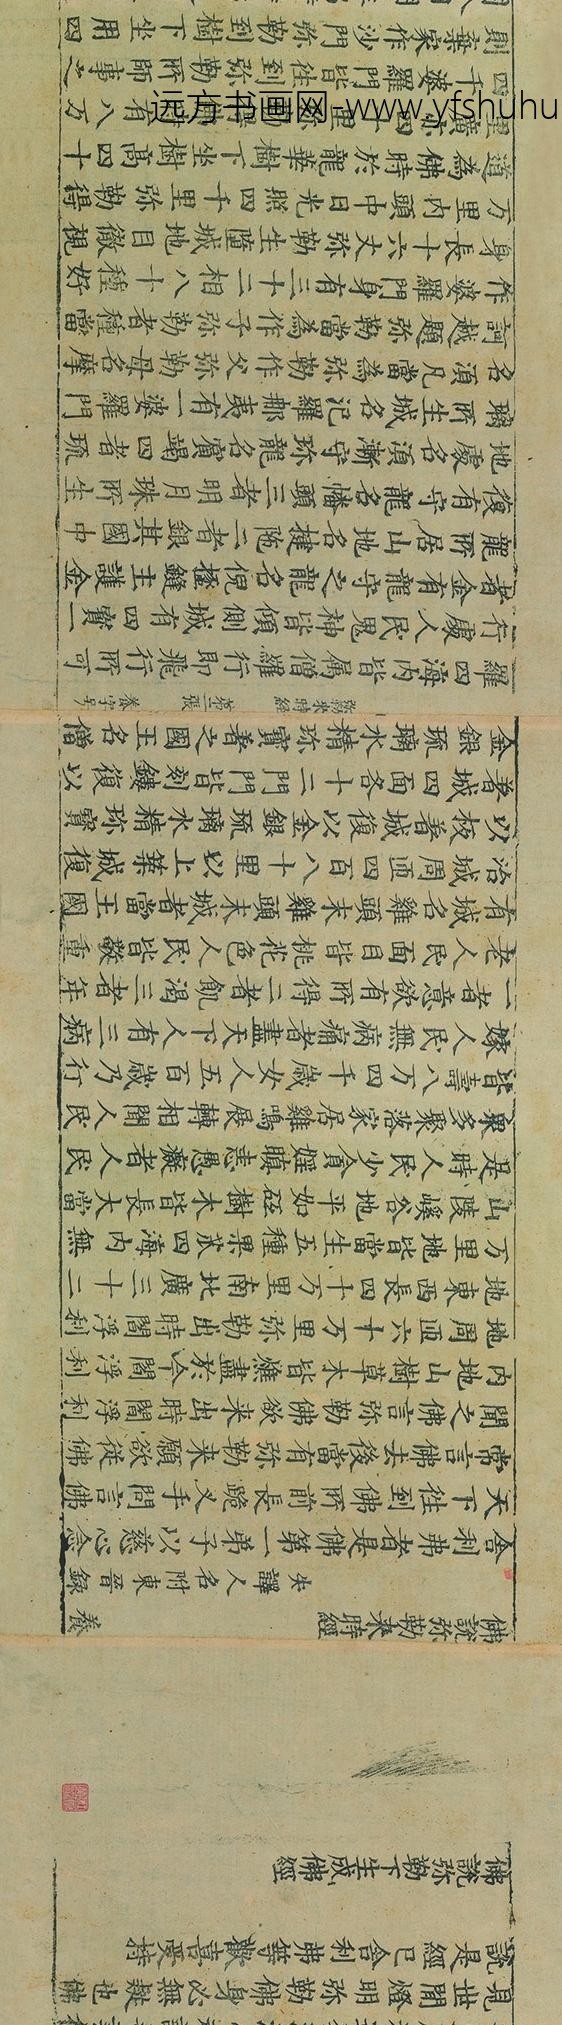 見世間燈明弥勒佛身必無疑也佛
說是經已舍利弗等歡喜受持
佛說弥勒下生成佛經
佛說弥勒来時經 養
失譯人名附東晉録
舍利弗者是佛第一弟子以慈心念
天下往到佛所前長跪叉手問言佛
常言佛去後當有弥勒来願欲從佛
聞之佛言弥勒佛欲来出時閻浮利
内地山樹草木皆燋盡於今閻浮利
地周匝六十万里弥勒出時閻浮利
地東西長四十万里南北廣三十二
万里地皆當生五種果蓏四海内無
山陵嵠谷地平如砥樹木皆長大當
是時人民少貪婬瞋恚愚癡者人民
衆多聚落家居雞鳴展轉相聞人民
皆壽八万四千歲女人五百歲乃行
嫁人民無病痛者盡天下人有三病
一者意欲有所得二者飢渴三者年
老人民面目皆桃花色人民皆敬重
有城名雞頭末雞頭末城者當王國
治城周匝四百八十里以土築城復
以板著城復以金銀琉璃水精珍寶
著城四面各十二門門皆刻鏤復以
金銀琉璃水精珍寶著之國王名僧
弥勒来時經 第二張 養字号
羅四海内皆属僧羅行即飛行所可
行處人民鬼神皆傾側城有四寶一
者金有龍守之龍名倪榅鍉主護金
龍所居山地名揵陁二者銀其國中
復有守龍名幡頭三者明月珠所生
地處名須漸守珍龍名賓竭四者琉
璃所生城名氾羅那夷有一婆羅門
名須凡當為弥勒作父弥勒母名摩
訶越題弥勒當為作子弥勒者種當
作婆羅門身有三十二相八十種好
身長十六丈弥勒生墮城地目徹視
万里内頭中日光照四千里弥勒得
道為佛時於龍華樹下坐樹高四十
里廣亦四十里弥勒得佛時有八万
四千婆羅門皆往到弥勒所師事之
則棄家作沙門弥勒到樹下坐用四
远方书画网-www.yfshuhu